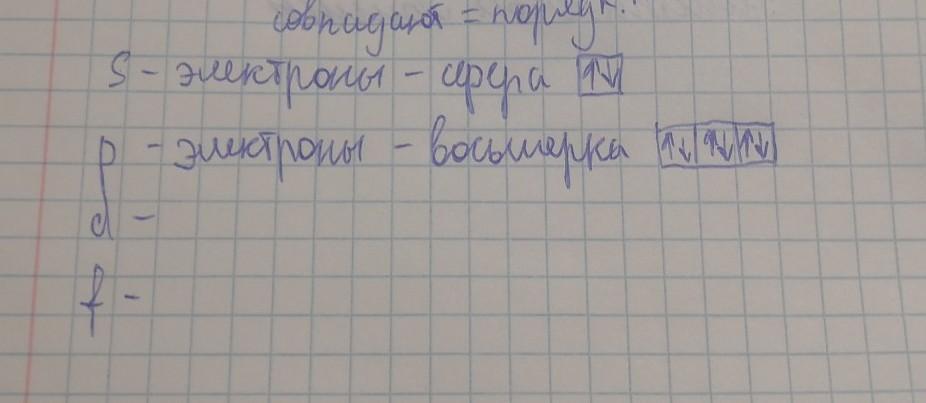 совпадают = поряд
s - электроны - сфера ↑↓
p - электроны - восьмерка ↑↓ ↑↓ ↑↓
d -
f -